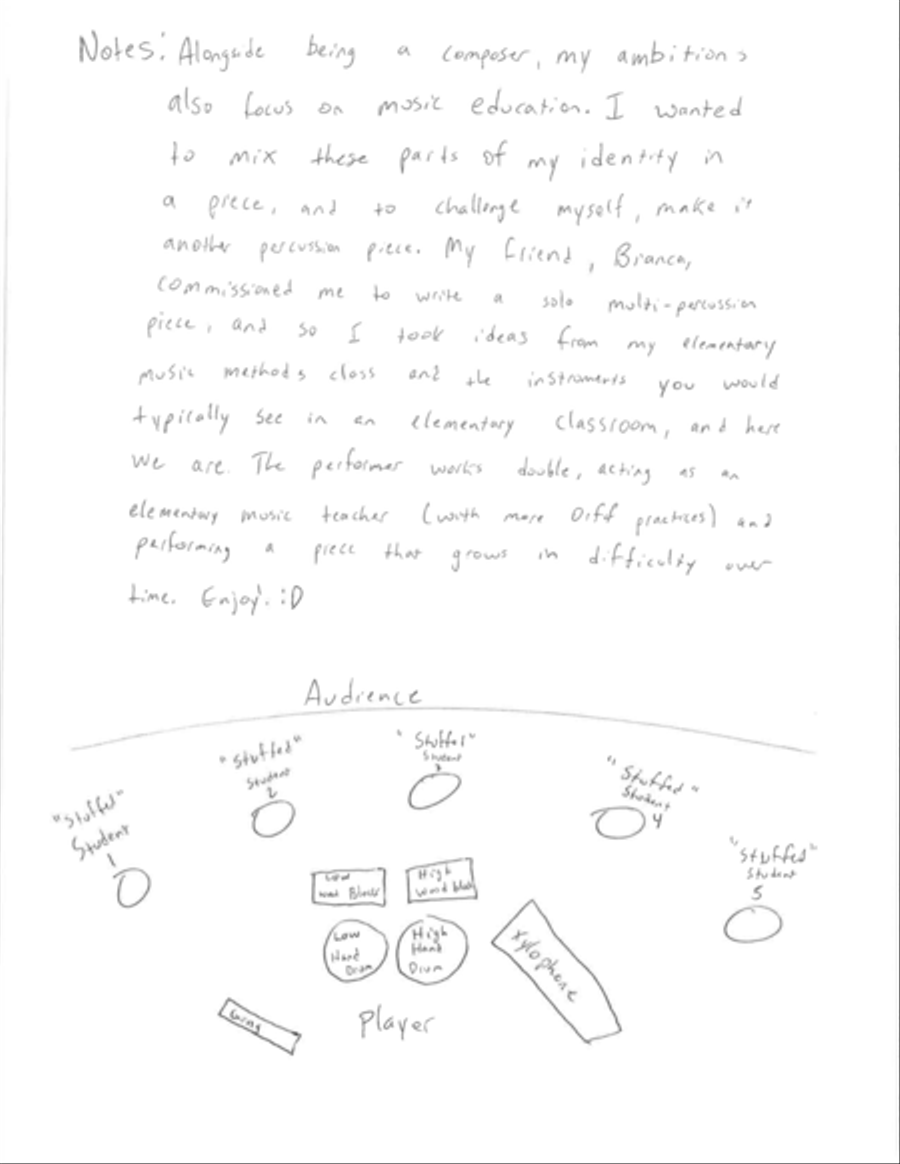 Notes: Alongside being a composer, my ambitions
also focus on music education. I wanted
to mix these parts of my identity in
a piece, and to challenge myself, make it
another percussion piece. My friend, Branca,
commissioned me to write a solo multi-percussion
piece, and so I took ideas from my elementary
music methods class and the instruments you would
typically see in an elementary classroom, and here
we are. The performer works double, acting as an
elementary music teacher (with more Orff practices) and
performing a piece that grows in difficulty over
time. Enjoy! :D
Audience
"Stuffed"
Student
1
"Stuffed"
Student
2
"Stuffed"
Student
3
"Stuffed"
Student
4
"Stuffed"
Student
5
Low
Wood Block
High
Wood block
Low
Hand
Drum
High
Hand
Drum
Xylophone
Gong
Player